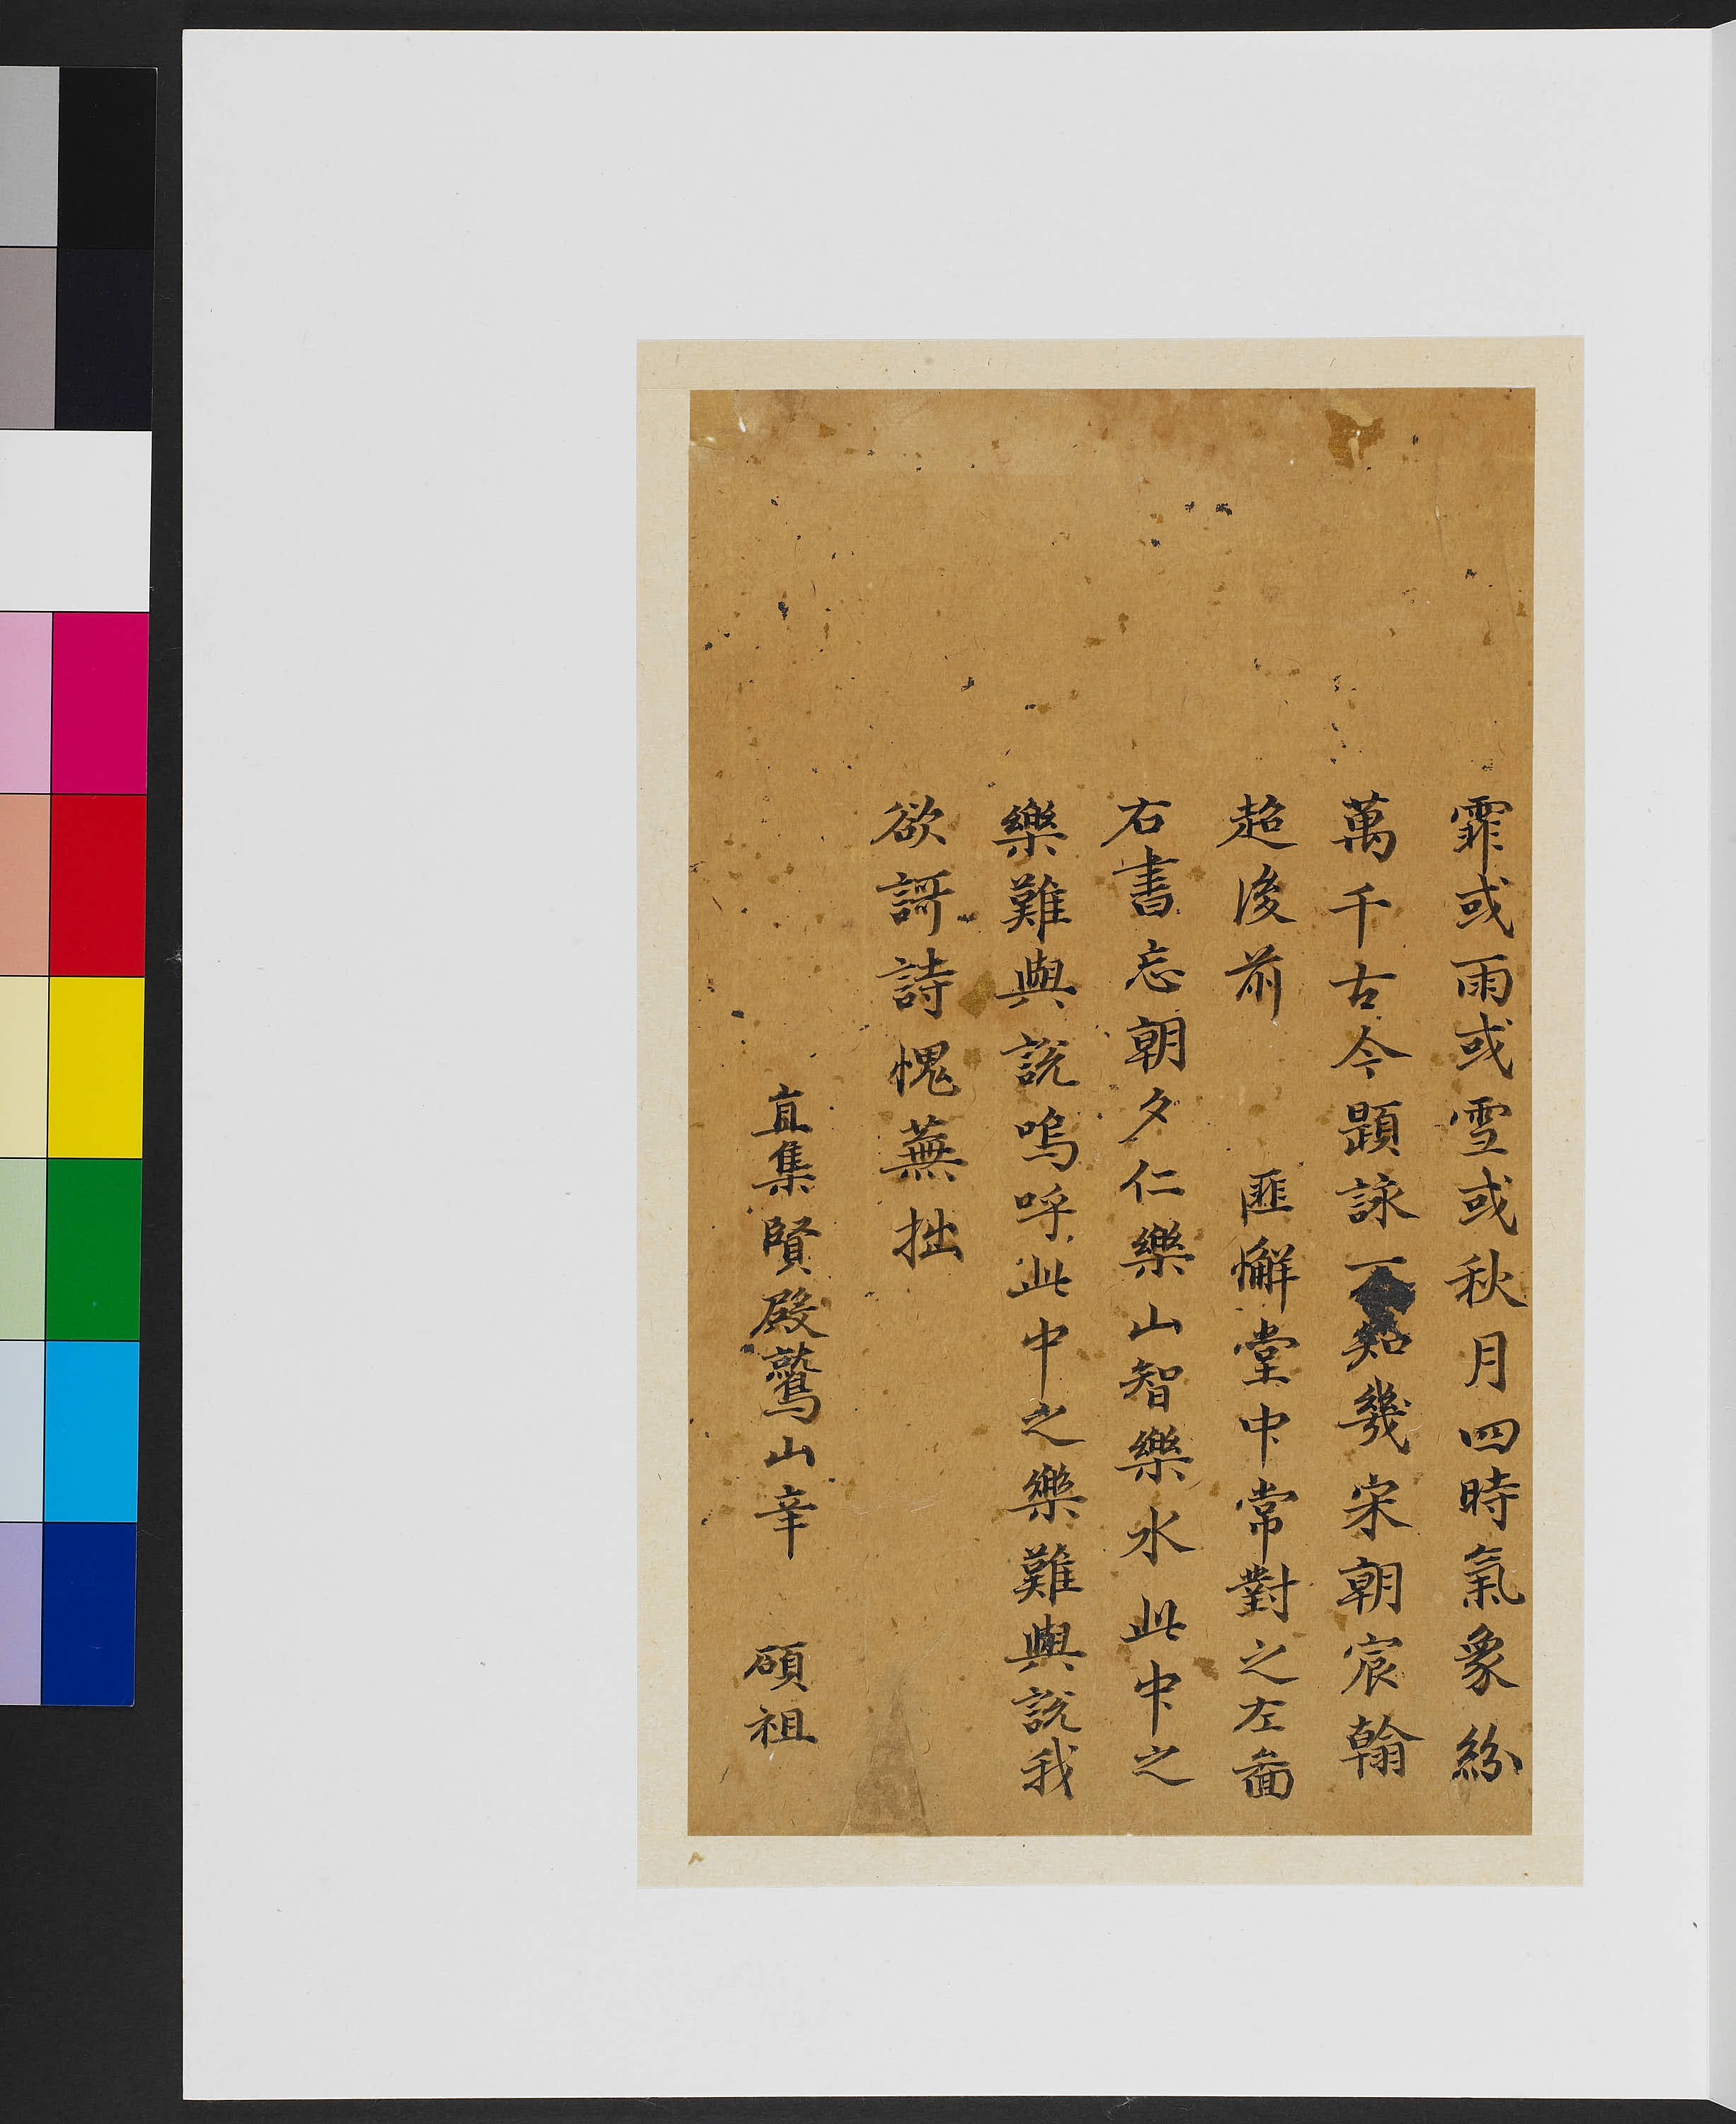 霏或雨或雪或秋月四時氣象紛
萬千古今題詠知幾宋朝宸翰
超後前 匪懈堂中常對之左啚
右書忘朝夕仁樂山智樂水此中之
樂難與說嗚呼此中之樂難與說我
欲謌詩愧蕪拙
直集賢殿鷲山辛 碩祖